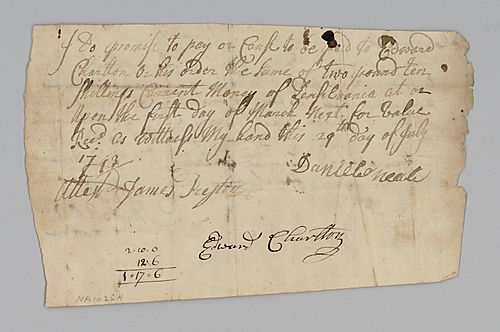 I do promise to pay or Cause to be paid to Edward
Charlton or his order the sume of two pound ten
shillings Current Money of Pensilvania at or
upon the first day of March next for value
Recd as wittness My hand this 29th day of July
17
Attest James Preston
Daniel Oneale
Edward Charlton
2.10.0
12.6
1.17.6